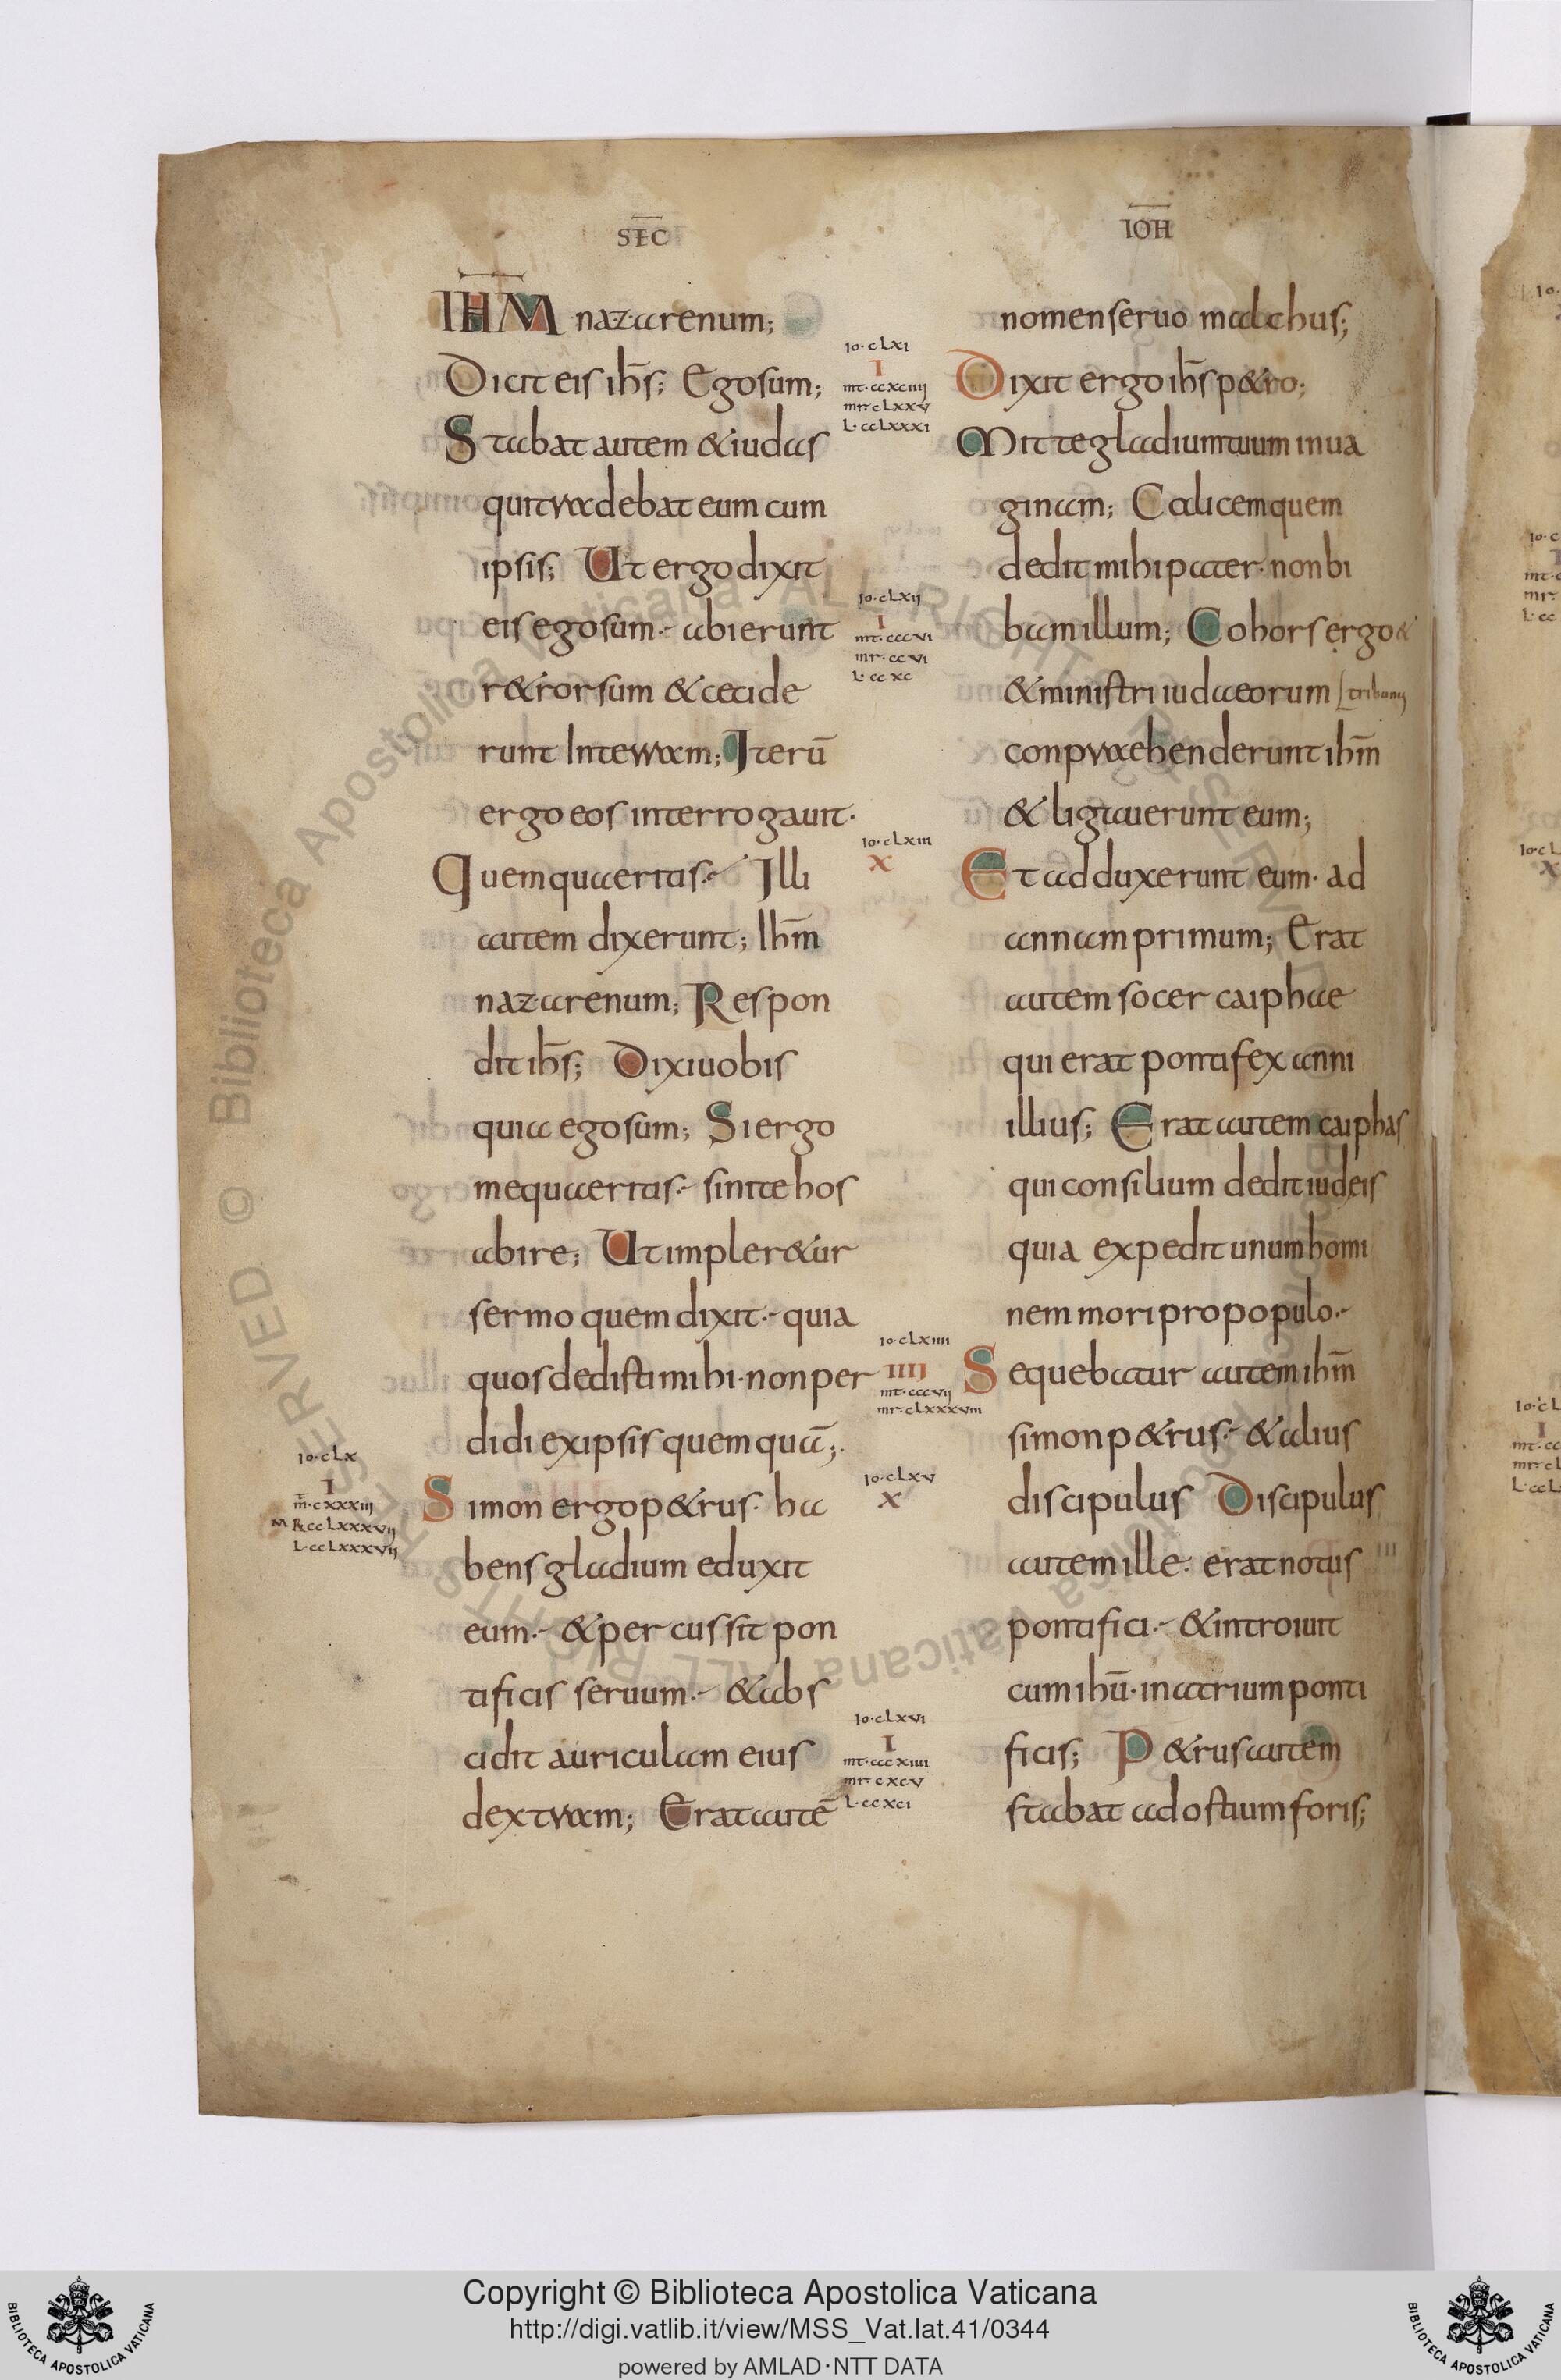 SEC̅
IOH̅
IHM̅ nazarenum;
Dicit eis ih̅s; Ego sum;
Stabat autem & iudas
qui tradebat eum cum
ipsis; Ut ergo dixit
eis ego sum.- abierunt
r&rorsum & cecide
runt Interram; Iteru̅
ergo eos interrogauit.
Quem quaeritis.- Illi
autem dixerunt; Ih̅m
nazarenum; Respon
dit ih̅s; Dixi uobis
quia ego sum; Si ergo
me quaeritis.- sinite hos
abire; Ut impler&ur
sermo quem dixit.- quia
quos dedisti mihi. non per
didi ex ipsis quemqua̅;.
Simon ergo p&rus. ha
bens gladium eduxit
eum.- & percussit pon
tificis seruum.- & abs
cidit auriculam eius
dextram; Erat aute̅
io.clx
I
m̅.cxxxiij
MR.cclxxxvij
L.cclxxxvij
io.clxi
I
mt.ccxciiij
mr.clxxv
L.cclxxxi
io.clxij
I
mt.cccvi
mr.ccvi
L.ccxc
io.clxiii
X
io.clxiiii
IIII
mt.cccvij
mr.clxxxviii
io.clxv
X
io.clxvi
I
mt.cccxiiii
mr.cxcv
L.ccxci
nomen seruo malchus;
Dixit ergo ih̅s p&ro;
Mitte gladium tuum in ua
ginam; Calicem quem
dedit mihi pater. non bi
bam illum; Cohors ergo &
& ministri iudaeorum tribunus
conpraehenderunt ih̅m
& ligauerunt eum;
Et adduxerunt eum. ad
annam primum; Erat
autem socer caiphae
qui erat pontifex anni
illius; Erat autem caiphas
qui consilium dedit iudeis
quia expedit unum homi
nem mori pro populo.-
Sequebatur autem ih̅m
simon p&rus.- & alius
discipulus Discipulus
autem ille. erat notus
pontifici.- & introiuit
cum ihu̅. in atrium ponti
ficis; P&rus autem
stabat ad ostium foris;
© Biblioteca Apostolica Vaticana ALL RIGHTS RESERVED
Copyright © Biblioteca Apostolica Vaticana
http://digi.vatlib.it/view/MSS_Vat.lat.41/0344
powered by AMLAD·NTT DATA
BIBLIOTECA APOSTOLICA VATICANA
BIBLIOTECA APOSTOLICA VATICANA